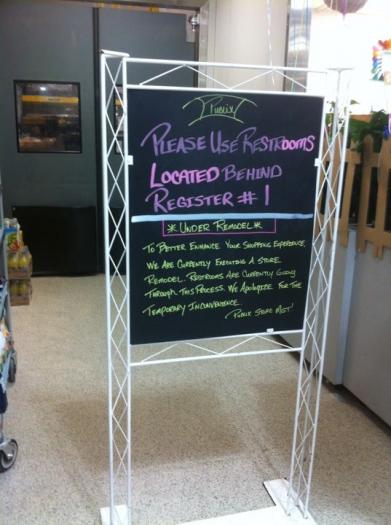 Publix
Please Use Restrooms
Located Behind
Register #1
* Under Remodel *
To Better Enhance Your Shopping Experience,
We Are Currently Executing A Store
Remodel. Restrooms Are Currently Going
Through This Process. We Apologize For The
Temporary Inconvenience.
Publix Store Mgt!